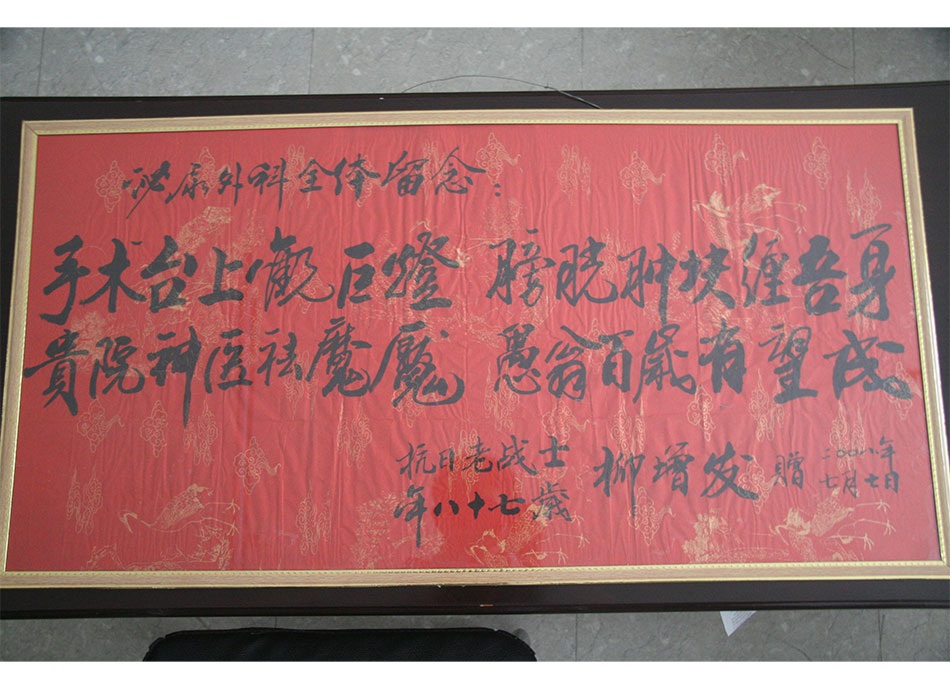 泌尿外科全体留念：
手术台上觀巨燈 膀胱肿块缠吾身
貴院神医祛魔魘 愚翁百歲有望成
抗日老战士
年八十七歲
柳增发 赠
二〇〇八年
七月七日